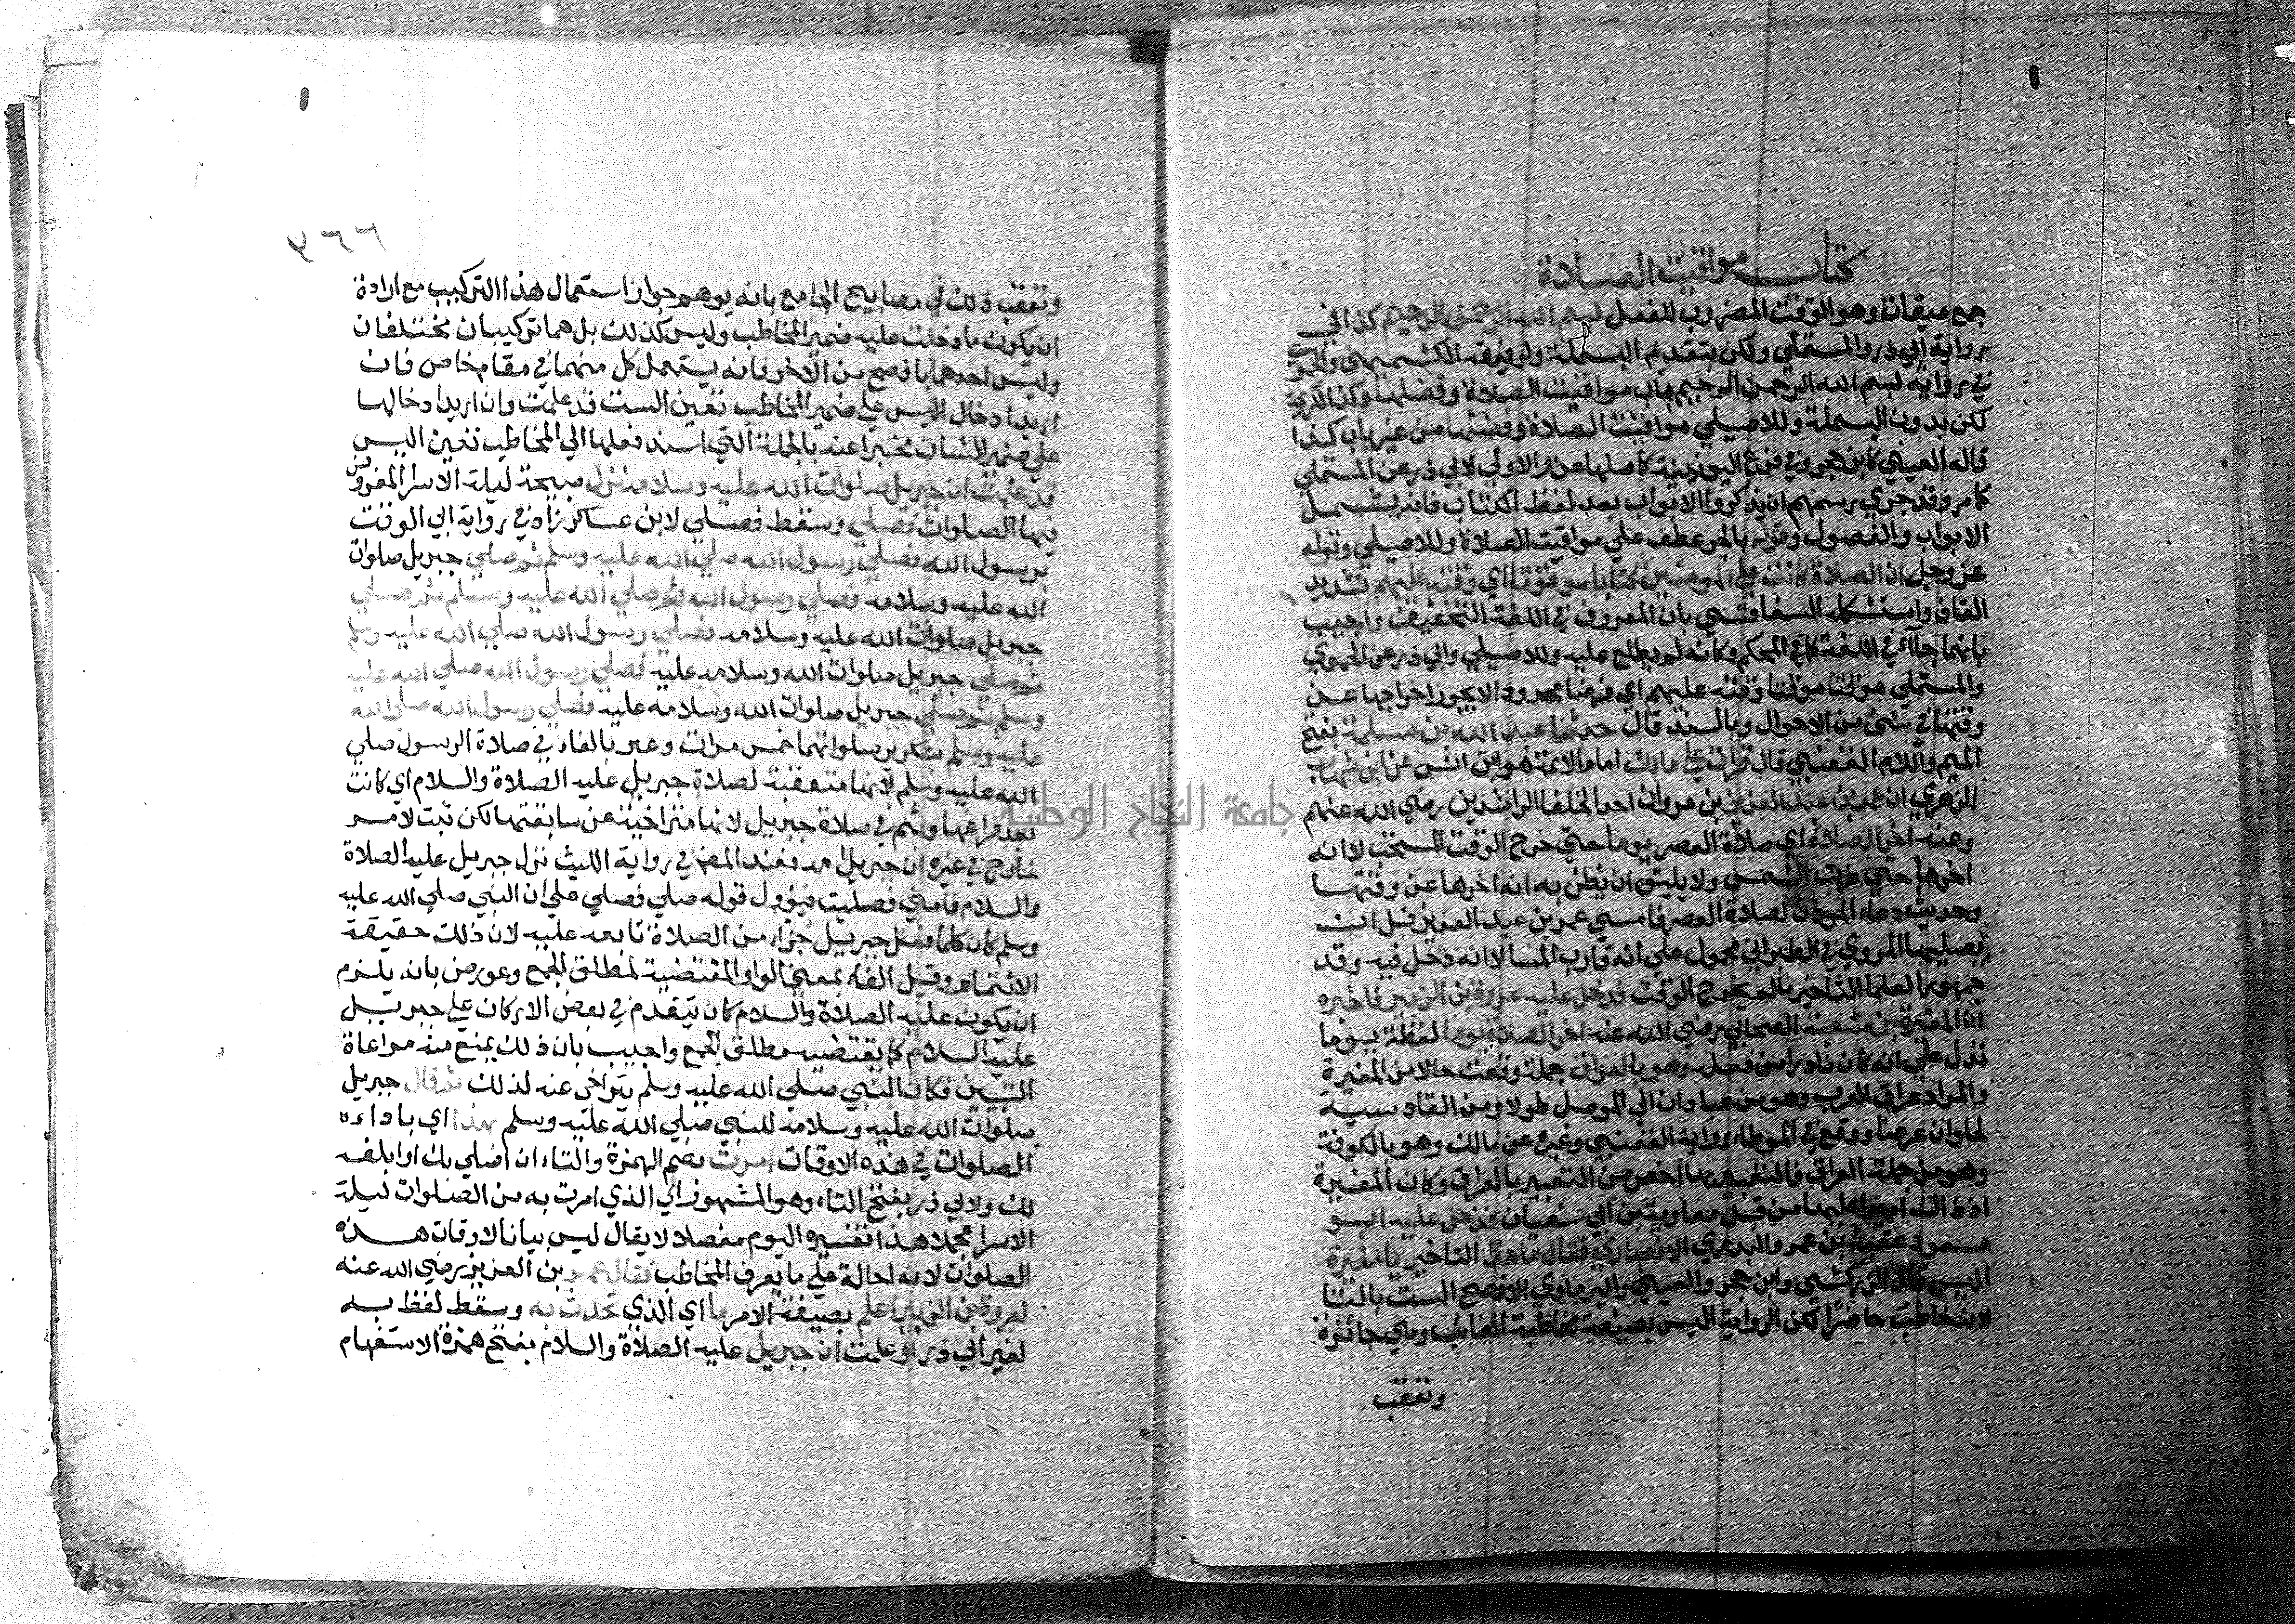 كتاب مواقيت الصلاة
جمع ميقات وهو الوقت المضروب للفعل بسم الله الرحمن الرحيم كذا في
رواية ابي ذر والمستملي ولكن بتقديم البسملة ولرفيقه الكشميهني والحموي
في رواية بسم الله الرحمن الرحيم باب مواقيت الصلاة وفضلها وكذا لكريمة
لكن بدون البسملة وللاصيلي مواقيت الصلاة وفضلها من غير باب كذا
قاله العيني كابن حجر وفي فرع اليونينية كاصلها عزو الاولي لابي ذر عن المستملي
كما مر وقد جري رسمهم ان يذكروا الابواب بعد لفظ الكتاب فانه يشمل
الابواب والفصول وقوله بالجر عطف علي مواقيت الصلاة وللاصيلي وقوله
عز وجل ان الصلاة كانت علي المومنين كتابا موقوتا اي وقته عليهم بتشديد
القاف واستشكله السفاقسي بان المعروف في اللغة التخفيف واجيب
بانهما جاآ في اللغة كما في المحكم وكانه لم يطلع عليه وللاصيلي وابي ذر عن الحموي
والمستملي موقتا موقتا وقته عليهم اي فرضا محدودا لا يجوز اخراجها عن
وقتها في شئ من الاحوال وبالسند قال حدثنا عبد الله بن مسلمة بفتح
الميم واللام القعنبي قال قرات علي مالك امام الائمة هو ابن انس عن ابن شهاب
الزهري ان عمر بن عبد العزيز بن مروان احد الخلفا الراشدين رضي الله عنهم
وعنه اخر الصلاة اي صلاة العصر يوما حتي خرج الوقت المستحب لا انه
اخرها حتي غربت الشمس ولا يليق ان يظن به انه اخرها عن وقتها
وحديث دعاء الموذن لصلاة العصر فامسي عمر بن عبد العزيز قبل ان
يصليها المروي في الطبراني محمول علي انه قارب المسا لا انه دخل فيه وقد
جمهور العلما التاخير ما لم يخرج الوقت فدخل عليه عروة بن الزبير فاخبره
ان المغيرة بن شعبة الصحابي رضي الله عنه اخر الصلاة يوما لفظة يوما
تدل علي انه كان نادرا من فعله وهو بالعراق جملة وقعت حالا من المغيرة
والمراد عراق العرب وهو من عبادان الي الموصل طولا ومن القادسية
لحلوان عرضا ووقع في الموطاء رواية القعنبي وغيره عن مالك وهو بالكوفة
وهو من جملة العراق فالتعبير بها اخص من التعبير بالعراق وكان المغيرة
اذ ذاك اميرا عليها من قبل معاوية بن ابي سفيان فدخل عليه ابو
مسعود عقبة بن عمرو البدري الانصاري فقال ما هذا التاخير يا مغيرة
اليس قال الزركشي وابن حجر والعيني والبرماوي الافصح الست بالتا
لانه خاطب حاضرا لكن الرواية اليس بصيغة مخاطبة الغائب وهي جائزة
وتعقب
٢٦٦
وتعقب ذلك في مصابيح الجامع بانه يوهم جواز استعمال هذا التركيب مع ارادة
ان يكون ما دخلت عليه ضمير المخاطب وليس كذلك بل هما تركيبان مختلفان
وليس احدهما بافصح من الاخر فانه يستعمل كل منهما في مقام خاص فان
اريد ادخال اليس علي ضمير المخاطب تعين الست قد علمت وان اريد ادخالها
علي ضمير الشان مخبرا عنه بالجملة التي اسند فعلها الي المخاطب تعين اليس
قد علمت ان جبريل صلوات الله عليه وسلامه نزل صبيحة ليلة الاسرا المفروض
فيها الصلوات فصلي وسقط فصلي لابن عساكر زاد في رواية ابي الوقت
برسول الله فصلي رسول الله صلي الله عليه وسلم ثم صلي جبريل صلوات
الله عليه وسلامه فصلي رسول الله صلي الله عليه وسلم ثم صلي
جبريل صلوات الله عليه وسلامه فصلي رسول الله صلي الله عليه وسلم
ثم صلي جبريل صلوات الله وسلامه عليه فصلي رسول الله صلي الله عليه
وسلم ثم صلي جبريل صلوات الله وسلامه عليه فصلي رسول الله صلي الله
عليه وسلم بتكرير صلواتهما خمس مرات وعبر بالفاء في صلاة الرسول صلي
الله عليه وسلم لانها متعقبة لصلاة جبريل عليه الصلاة والسلام اي كانت
بعد فراغها وثم في صلاة جبريل لانها متراخية عن سابقتها لكن ثبت لامر
خارج في غيره ان جبريل امه فعند المص في رواية الليث نزل جبريل عليه الصلاة
والسلام فامني فصليت فيؤول قوله صلي فصلي علي ان النبي صلي الله عليه
وسلم كان كلما فعل جبريل جزاء من الصلاة تابعه عليه لان ذلك حقيقة
الائتمام وقيل الفاء بمعني الواو المقتضية لمطلق الجمع وعورض بانه يلزم
ان يكون عليه الصلاة والسلام كان يتقدم في بعض الاركان علي جبريل
عليه السلام كما يقتضيه مطلق الجمع واجيب بان ذلك يمنع منه مراعاة
التبيين فكان النبي صلي الله عليه وسلم يتراخي عنه لذلك ثم قال جبريل
صلوات الله عليه وسلامه للنبي صلي الله عليه وسلم بهذا اي باداءه
الصلوات في هذه الاوقات امرت بضم الهمزة والتاء ان اصلي بك او ابلغه
لك ولابي ذر بفتح التاء وهو المشهور اي الذي امرت به من الصلوات ليلة
الاسرا مجملا هذا تفسيره اليوم مفصلا لا يقال ليس بيانا لاوقات هذه
الصلوات لانه احالة علي ما يعرف المخاطب فقال عمر بن العزيز رضي الله عنه
لعروة بن الزبير اعلم بصيغة الامر ما اي الذي تحدث به وسقط لفظ به
لغير ابي ذر او علمت ان جبريل عليه الصلاة والسلام بفتح همزة الاستفهام
جامعة النجاح الوطنية